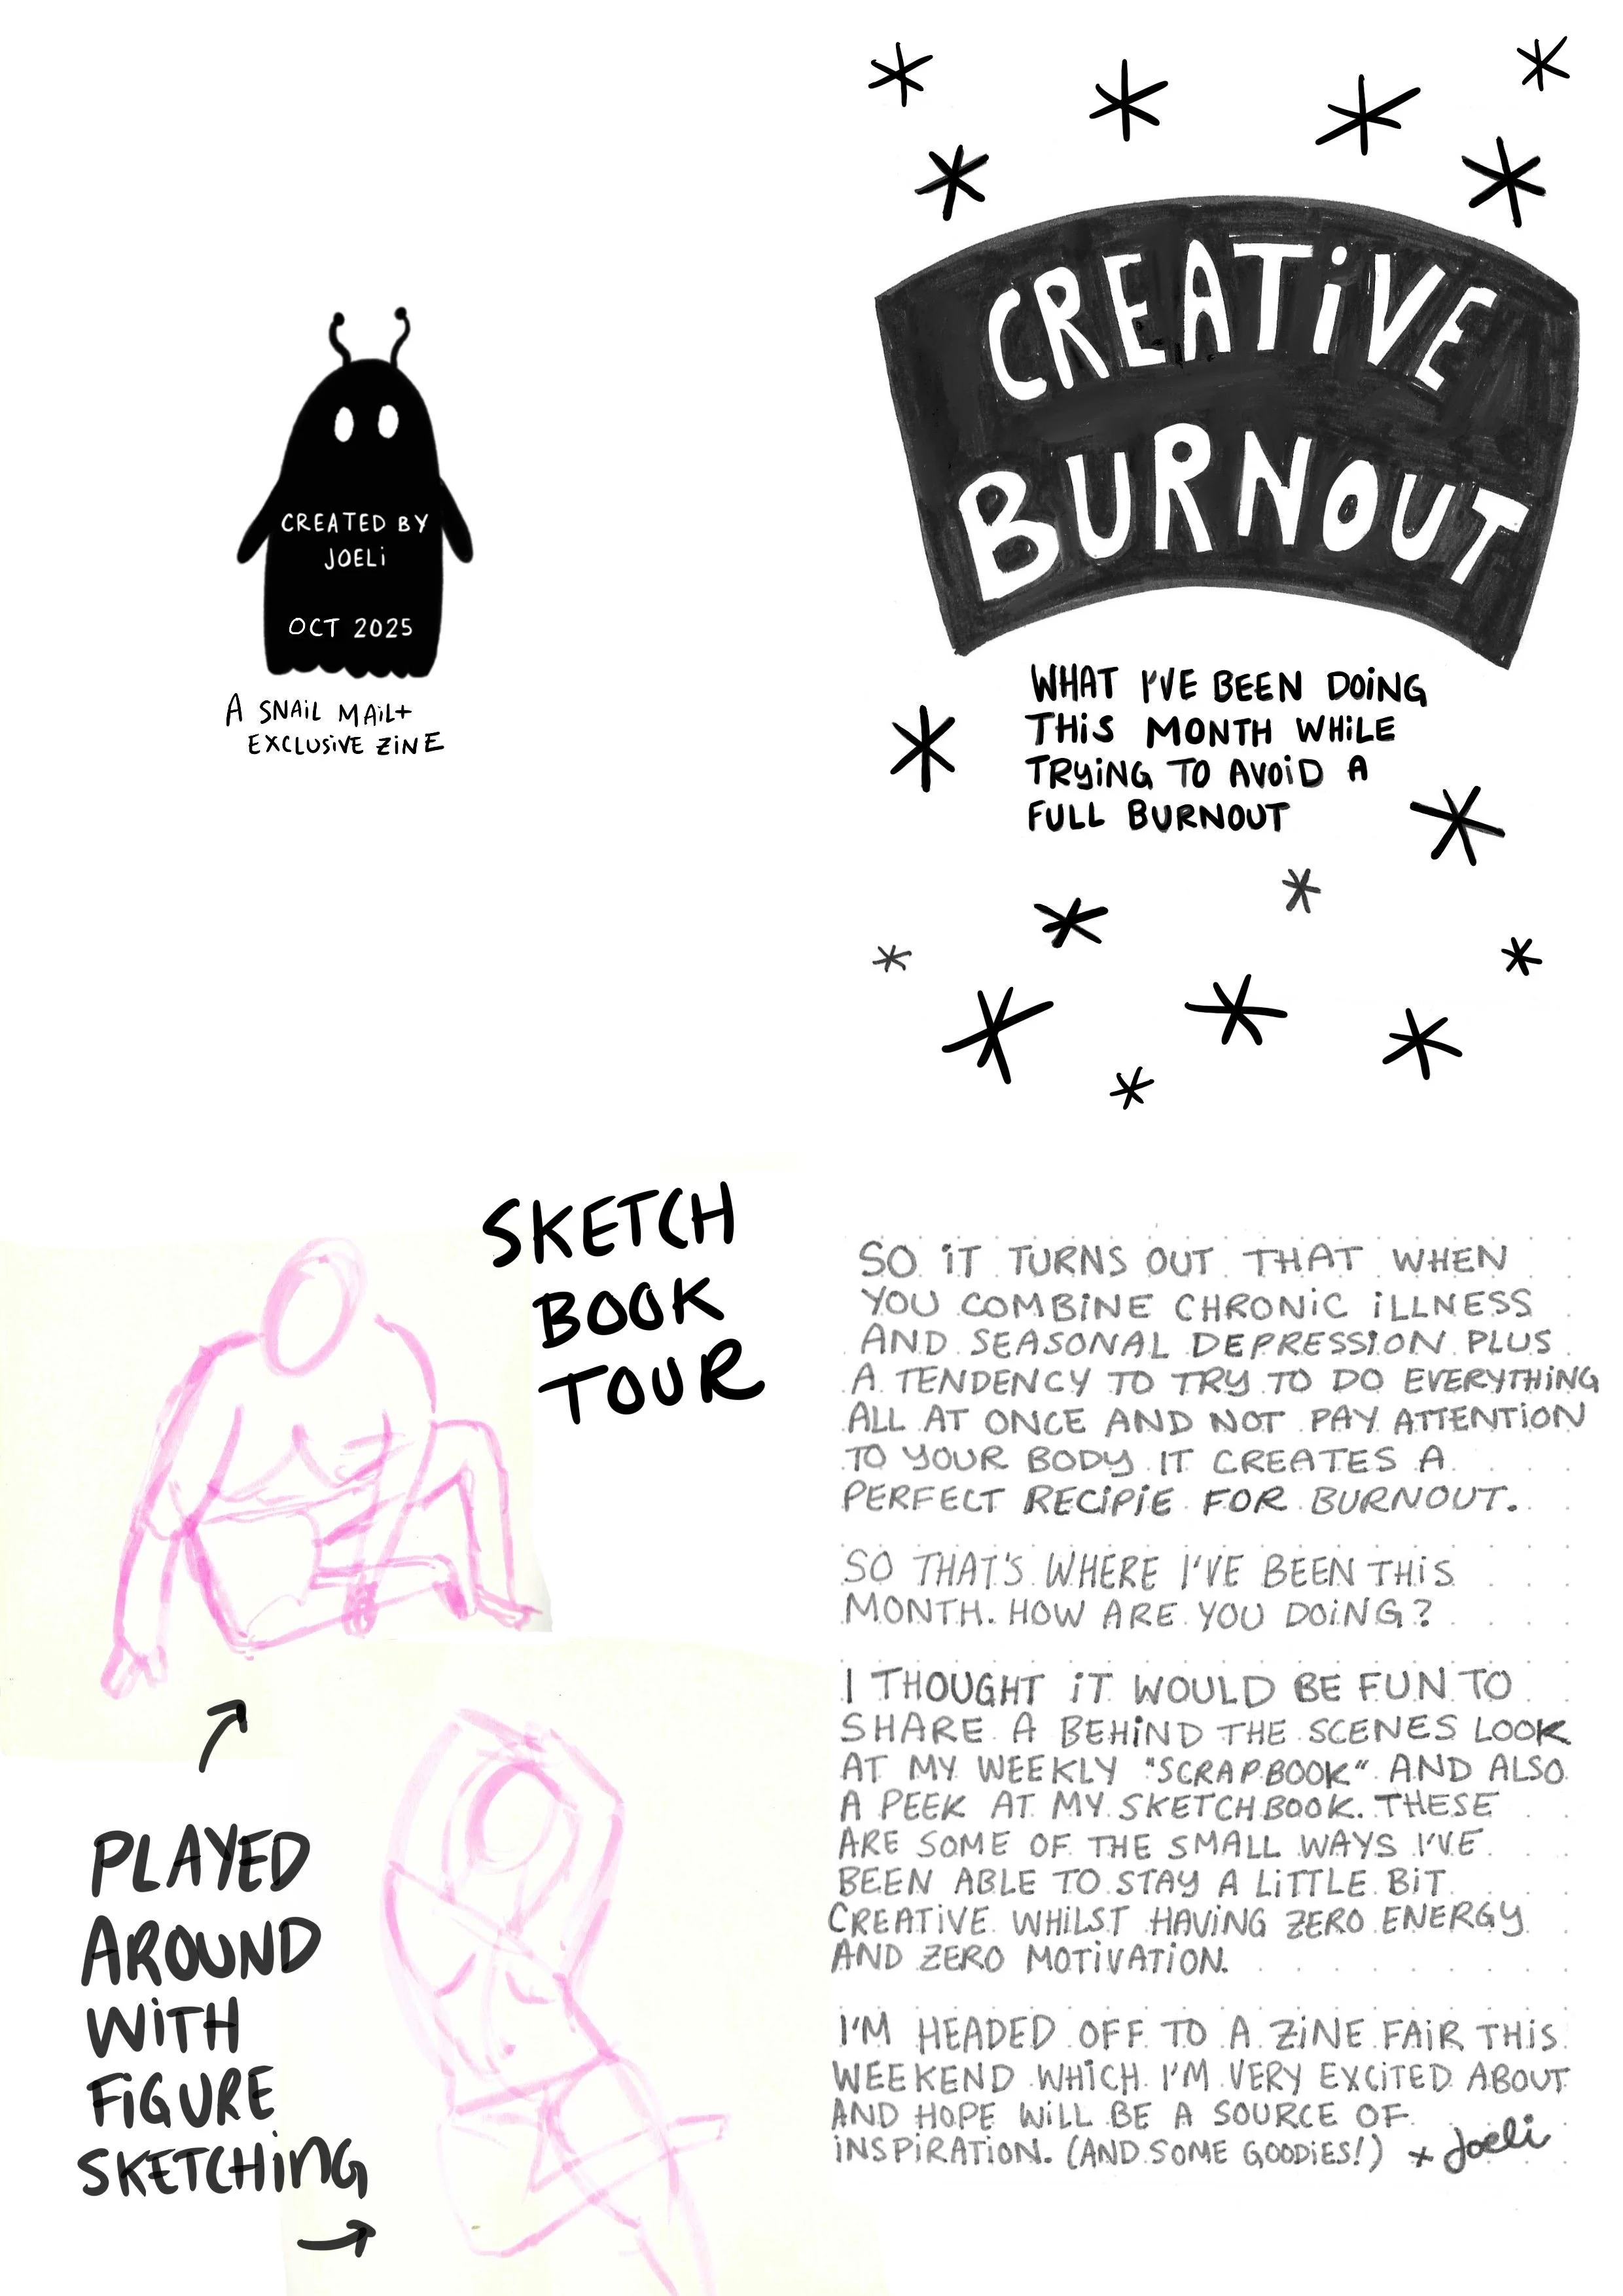 CREATED BY
JOELi
OCT 2025
A SNAiL MAiL+
EXCLUSiVE ZiNE
CREATiVE
BURNOUT
WHAT I'VE BEEN DOiNG
THiS MONTH WHiLE
TRYiNG TO AVOiD A
FULL BURNOUT
SKETCH
BOOK
TOUR
PLAYED
AROUND
WiTH
FiGURE
SKETCHiNG
SO iT TURNS OUT THAT WHEN
YOU COMBiNE CHRONiC iLLNESS
AND SEASONAL DEPRESSION PLUS
A TENDENCY TO TRY TO DO EVERYTHiNG
ALL AT ONCE AND NOT PAY ATTENTiON
TO YOUR BODY IT CREATES A
PERFECT RECiPiE FOR BURNOUT.
SO THAT'S WHERE I'VE BEEN THiS
MONTH. HOW ARE YOU DOiNG?
I THOUGHT iT WOULD BE FUN TO
SHARE A BEHiND THE SCENES LOOK
AT MY WEEKLY "SCRAPBOOK" AND ALSO
A PEEK AT MY SKETCHBOOK. THESE
ARE SOME OF THE SMALL WAYS I'VE
BEEN ABLE TO STAY A LiTTLE BiT
CREATiVE WHiLST HAViNG ZERO ENERGY
AND ZERO MOTiVATiON.
I'M HEADED OFF TO A ZiNE FAiR THiS
WEEKEND WHiCH I'M VERY EXCiTED ABOUT
AND HOPE WiLL BE A SOURCE OF
iNSPiRATiON. (AND SOME GOODiES!) x Joeli